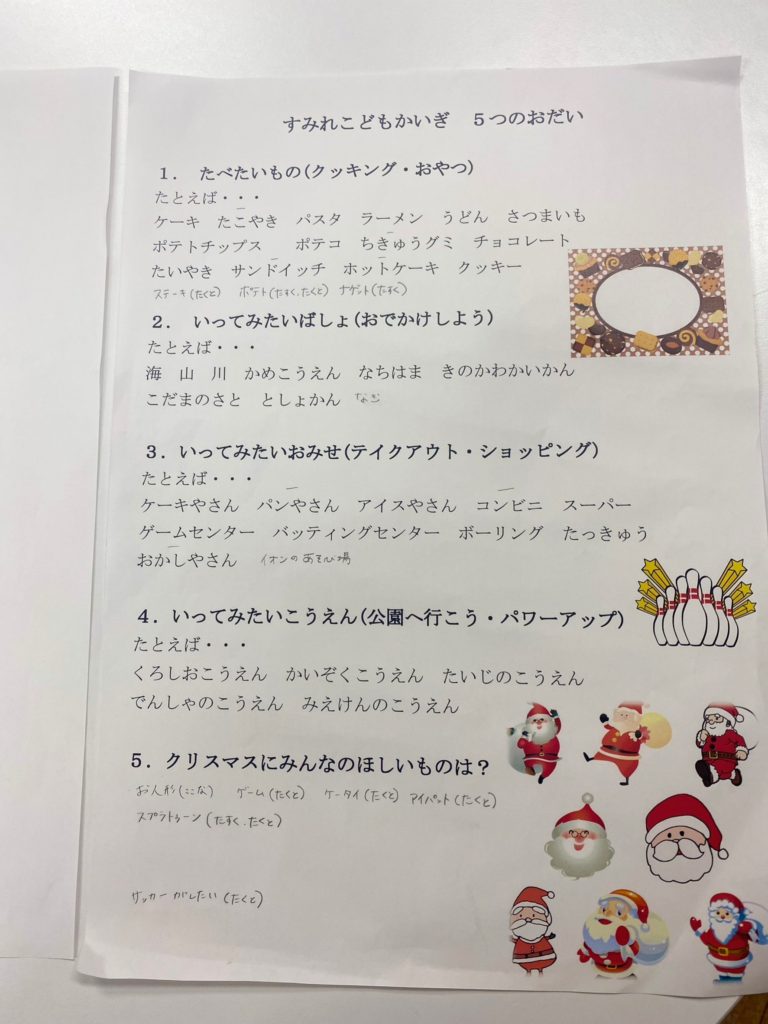 すみれこどもかいぎ　５つのおだい
１．　たべたいもの(クッキング・おやつ)
たとえば・・・
ケーキ　たこやき　パスタ　ラーメン　うどん　さつまいも
ポテトチップス　　ポテコ　ちきゅうグミ　チョコレート
たいやき　サンドイッチ　ホットケーキ　クッキー
ステーキ(たくと)　ポテト(たすく、たくと)　ナゲット(たすく)
２．　いってみたいばしょ(おでかけしよう)
たとえば・・・
海　山　川　かめこうえん　なちはま　きのかわかいかん
こだまのさと　としょかん
３．いってみたいおみせ(テイクアウト・ショッピング)
たとえば・・・
ケーキやさん　パンやさん　アイスやさん　コンビニ　スーパー
ゲームセンター　バッティングセンター　ボーリング　たっきゅう
おかしやさん　イオンのあそび場
４．いってみたいこうえん(公園へ行こう・パワーアップ)
たとえば・・・
くろしおこうえん　かいぞくこうえん　たいじのこうえん
でんしゃのこうえん　みえけんのこうえん
５．クリスマスにみんなのほしいものは？
お人形(ここな)　ゲーム(たくと)　ケータイ(たくと)　アイパット(たくと)
スプラトゥーン(たすく、たくと)
サッカーがしたい(たくと)